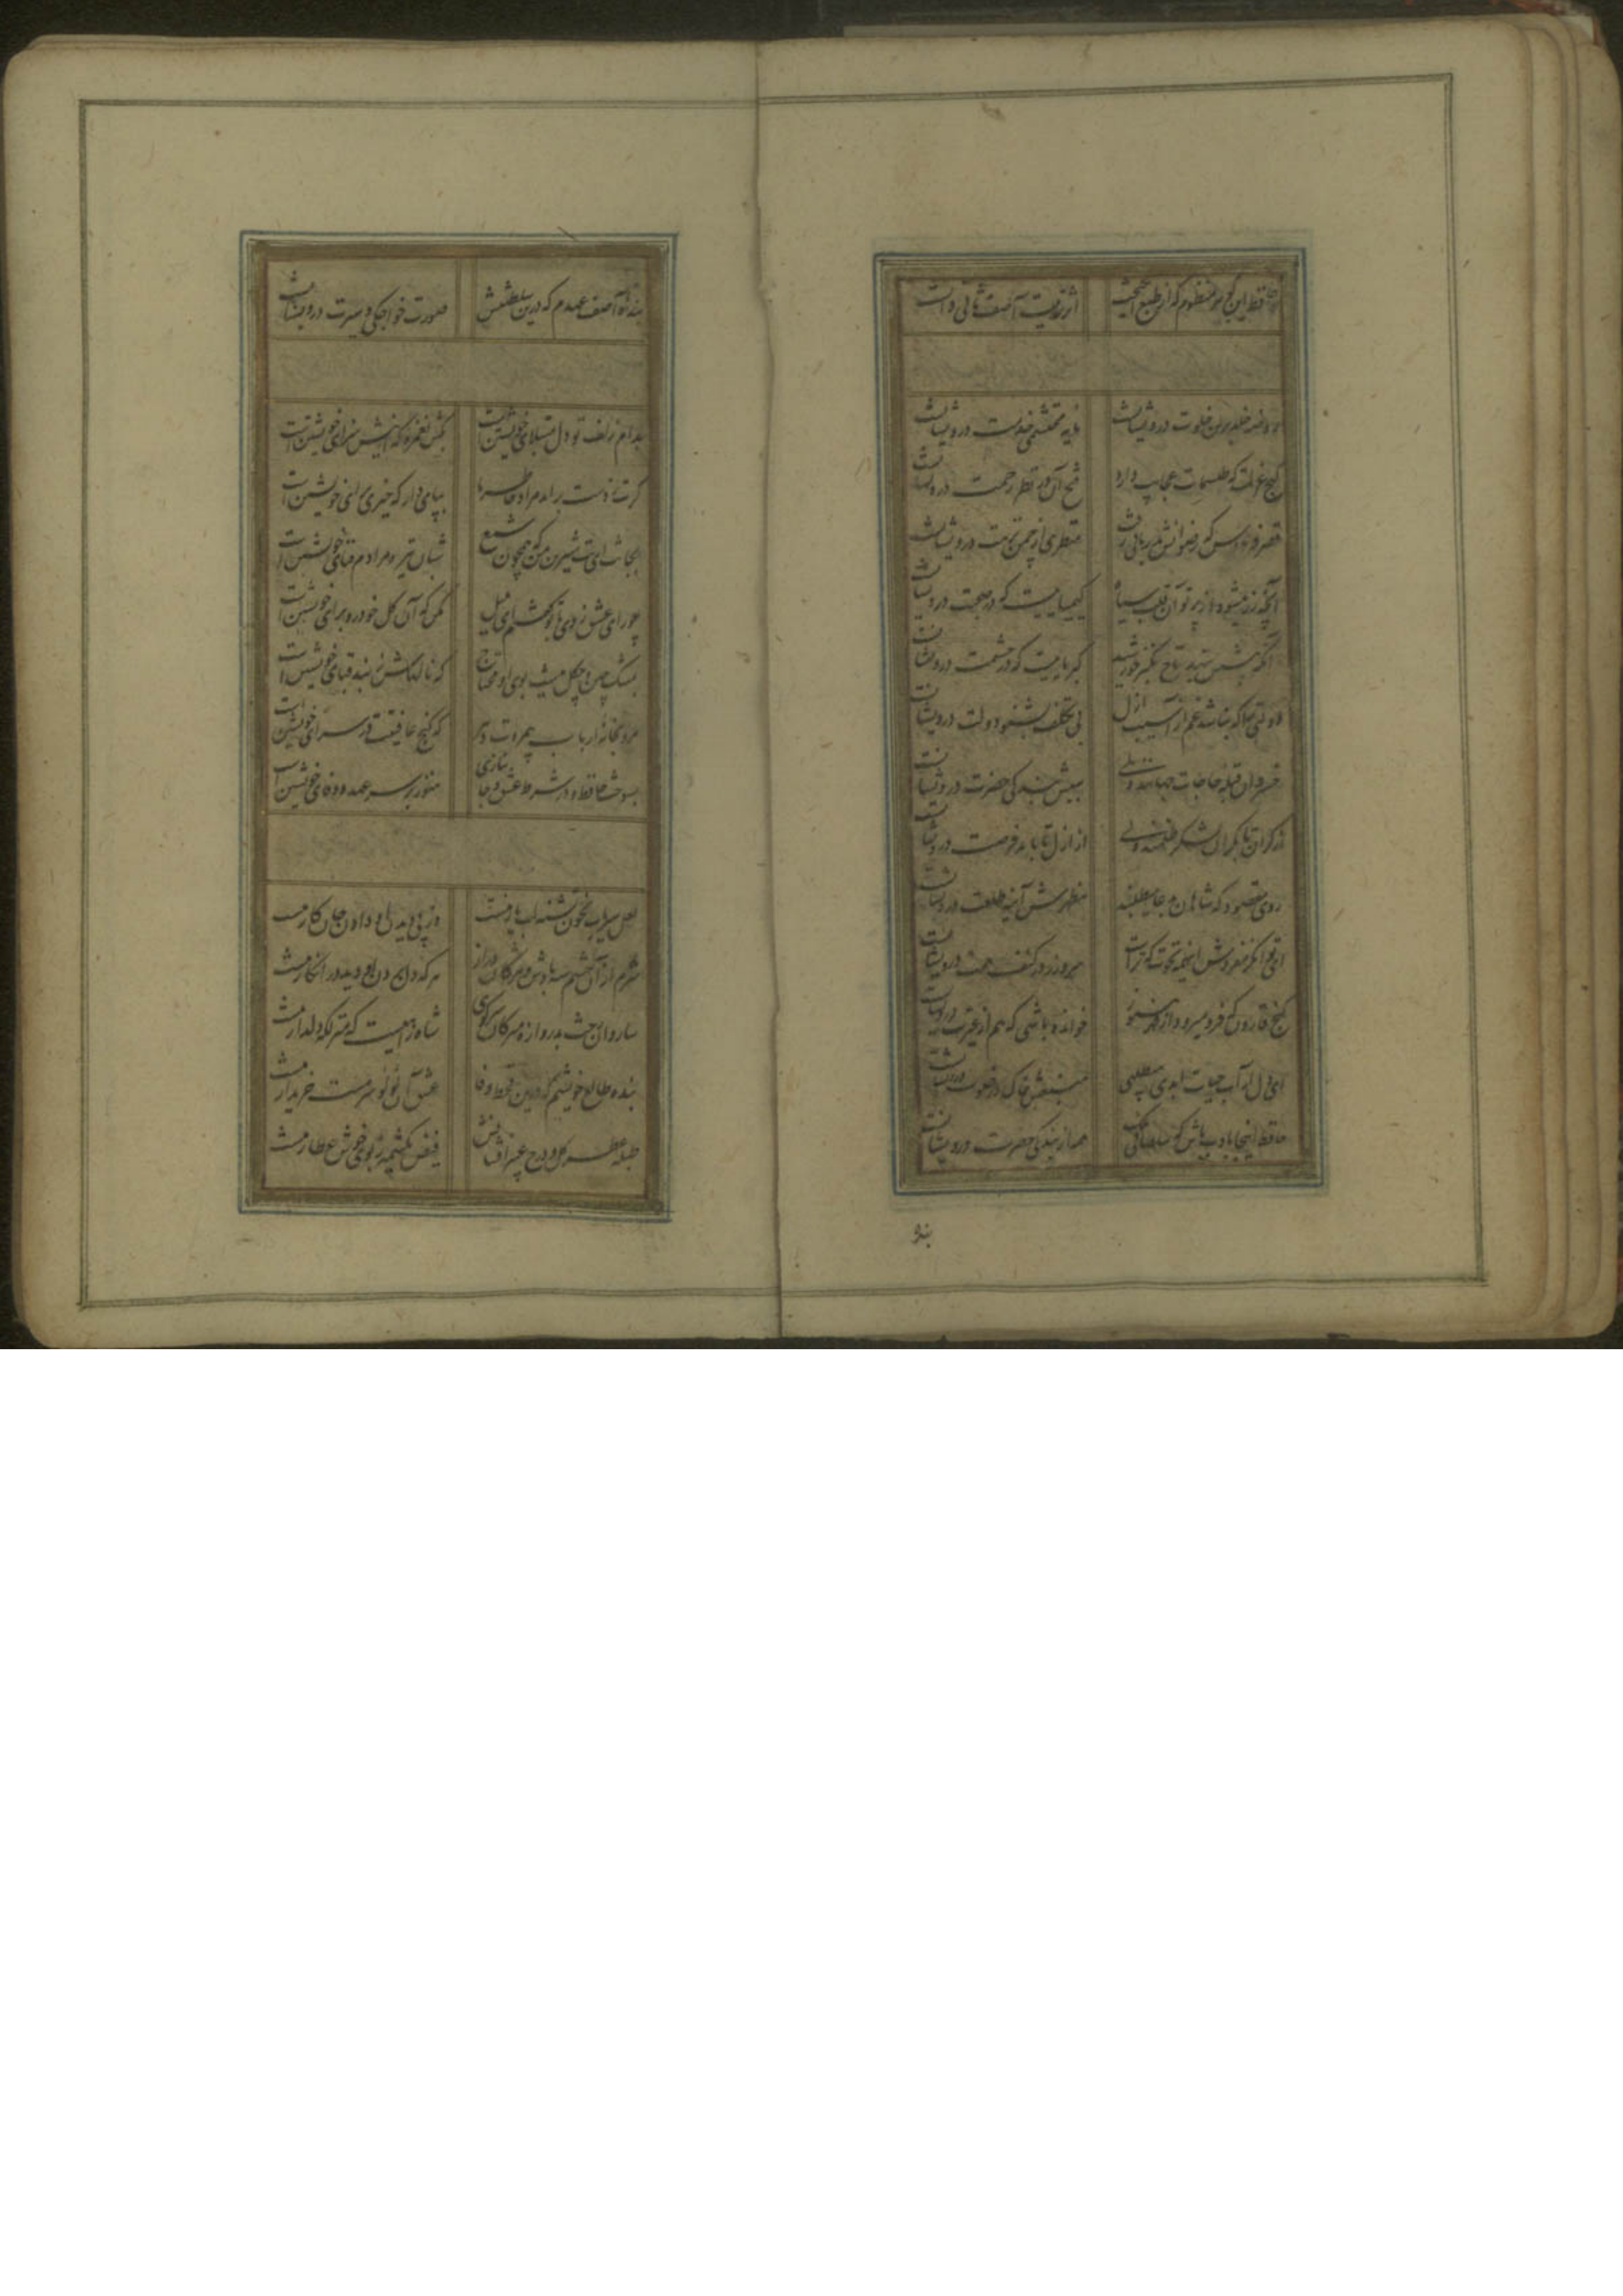 حافظ این گوهر منظوم که از طبع انگیخت اثر تربیت آصف ثانی دانست
روضه خلد برین خلوت درویشانست مایه محتشمی خدمت درویشانست
گنج عزلت که طلسمات عجایب دارد فتح آن در نظر رحمت درویشانست
قصر فردوس که رضوانش بدربانی رفت منظری از چمن نزهت درویشانست
آنچه زر میشود از پرتو آن قلب سیاه کیمیاییست که در صحبت درویشانست
آنکه پیشش بنهد تاج تکبر خورشید کبریاییست که در حشمت درویشانست
دولتی را که نباشد غم از آسیب زوال بی تکلف بشنو دولت درویشانست
خسروان قبله حاجات جهانند ولی سببش بندگی حضرت درویشانست
از کران تا بکران لشکر ظلمست ولی از ازل تا بابد فرصت درویشانست
روی مقصود که شاهان بدعا میطلبند مظهرش آینه طلعت درویشانست
ای توانگر مفروش اینهمه نخوت که ترا سر و زر در کنف همت درویشانست
گنج قارون که فرو میرود از قهر هنوز خوانده باشی که هم از غیرت درویشانست
ای دل ار آب حیات ابدی میطلبی منبعش خاک در خلوت درویشانست
حافظ اینجا بادب باش که سلطانی و ملک همه از بندگی حضرت درویشانست
بنده
بنده آصف عهدم که درین سلطنتش صورت خواجگی و سیرت درویشانست
بدام زلف تو دل مبتلای خویشتن است بکش بغمزه که اینش سزای خویشتن است
گرت ز دست برآید مراد خاطر ما بپای دار که خیری بجای خویشتن است
بجانت ای بت شیرین من که همچون شمع شبان تیره مرادم فنای خویشتن است
چو رای عشق زدی با تو گفتم ای بلبل مکن که آن گل خودرو برای خویشتن است
بمشک چین و چگل نیست بوی او محتاج که نافهاش ز بند قبای خویشتن است
مرو بخانه ارباب بی مروت دهر که کنج عافیتت در سرای خویشتن است
بسوخت حافظ و در شرط عشق و جانبازی هنوز بر سر عهد و وفای خویشتن است
لعل سیراب بخون تشنه لب یار منست وز پی دیدن او دادن جان کار منست
شرم از آن چشم سیه بادش و مژگان دراز هر که دل بردن او دید و در انکار منست
ساروان رخت بدروازه مبر کان سر کوی شاه راهیست که منزلگه دلدار منست
بنده طالع خویشم که درین قحط وفا عشق آن لولی سرمست خریدار منست
طبله عطر گل و درج عبیر افشانش فیض یک شمه ز بوی خوش عطار منست